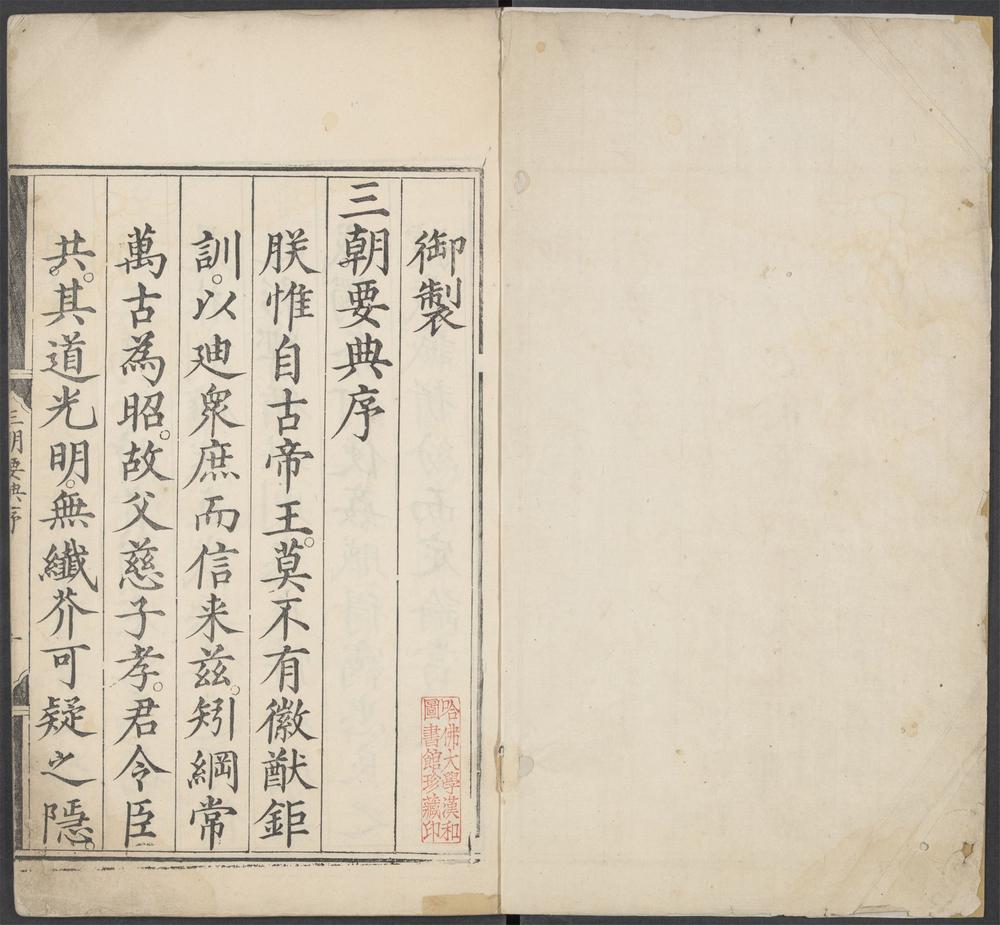 御製
三朝要典序
朕惟自古帝王。莫不有徽猷鉅
訓。以迪衆庶而信来兹。矧綱常
萬古為昭。故父慈子孝。君令臣
共。其道光明。無纖芥可疑之隱。
三朝要典序
一
哈佛大學漢和
圖書館珍藏印